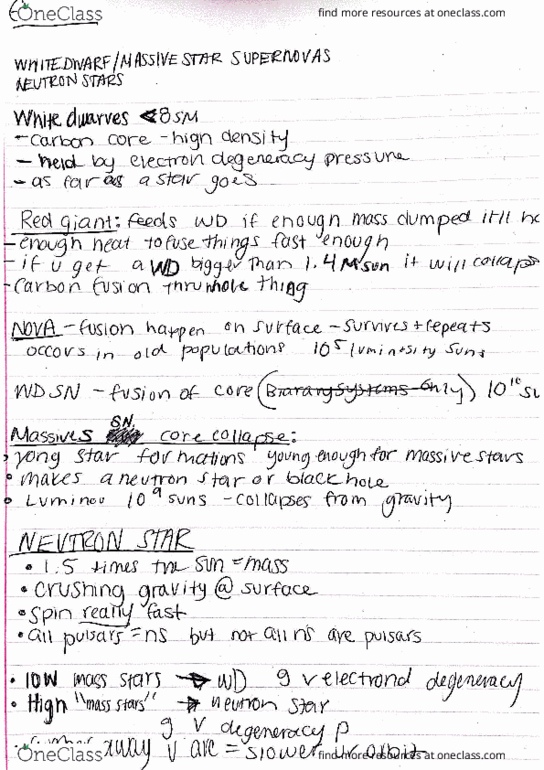 OneClass
find more resources at oneclass.com
WHITE DWARF/MASSIVE STAR SUPERNOVAS
NEUTRON STARS
White dwarves <8SM
- carbon core - high density
- held by electron degeneracy pressure
- as far as a star goes
Red giant: feeds WD if enough mass dumped it'll
- enough heat to fuse things fast enough
- if u get a WD bigger than 1.4 Msun it will collaps
- Carbon fusion thru whole thing
NOVA - fusion happen on surface - survives + repeats
occurs in old populations 10⁵ luminosity suns
WD SN - fusion of core (Binary Systems Only) 10¹⁰ su
Massives SN core collapse:
• yong star formations young enough for massive stars
• makes a neutron star or black hole
• Luminou 10⁹ suns - collapses from gravity
NEUTRON STAR
• 1.5 times the sun = mass
• crushing gravity @ surface
• spin really fast
• all pulsars = ns but not all ns are pulsars
• low mass stars → WD g v electrond degeneracy
• High "mass stars" → neutron star
g v degeneracy p
away v are = slower in orbit
OneClass
find more resources at oneclass.com